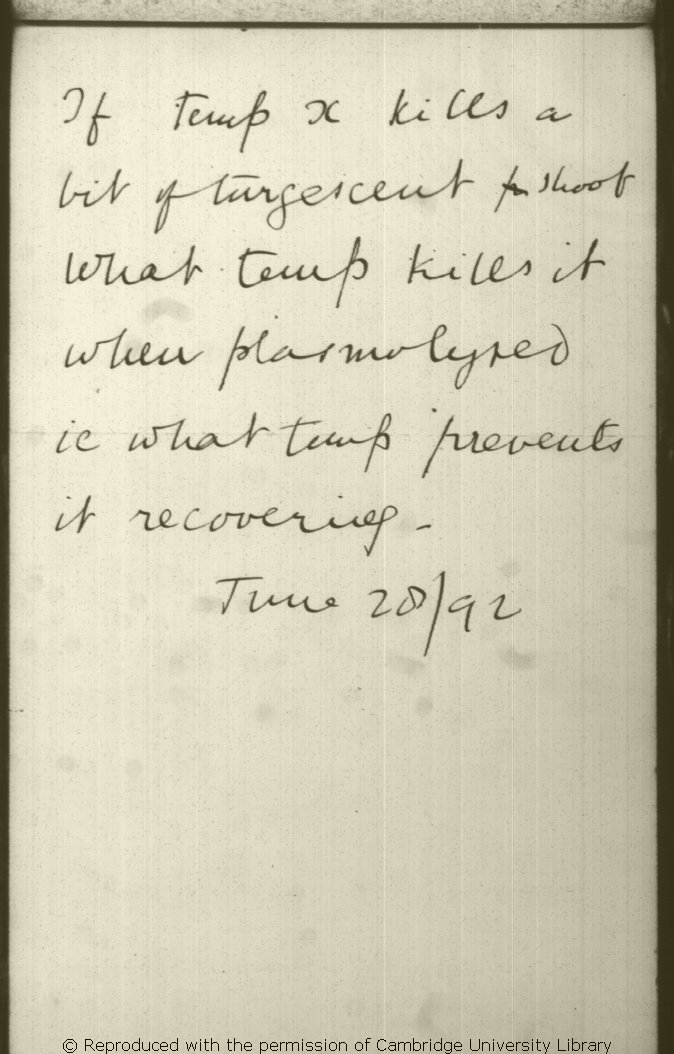 If temp x kills a
bit of turgescent shoot
What temp kills it
when plasmolysed
ie what temp prevents
it recovering -
June 28/92
© Reproduced with the permission of Cambridge University Library